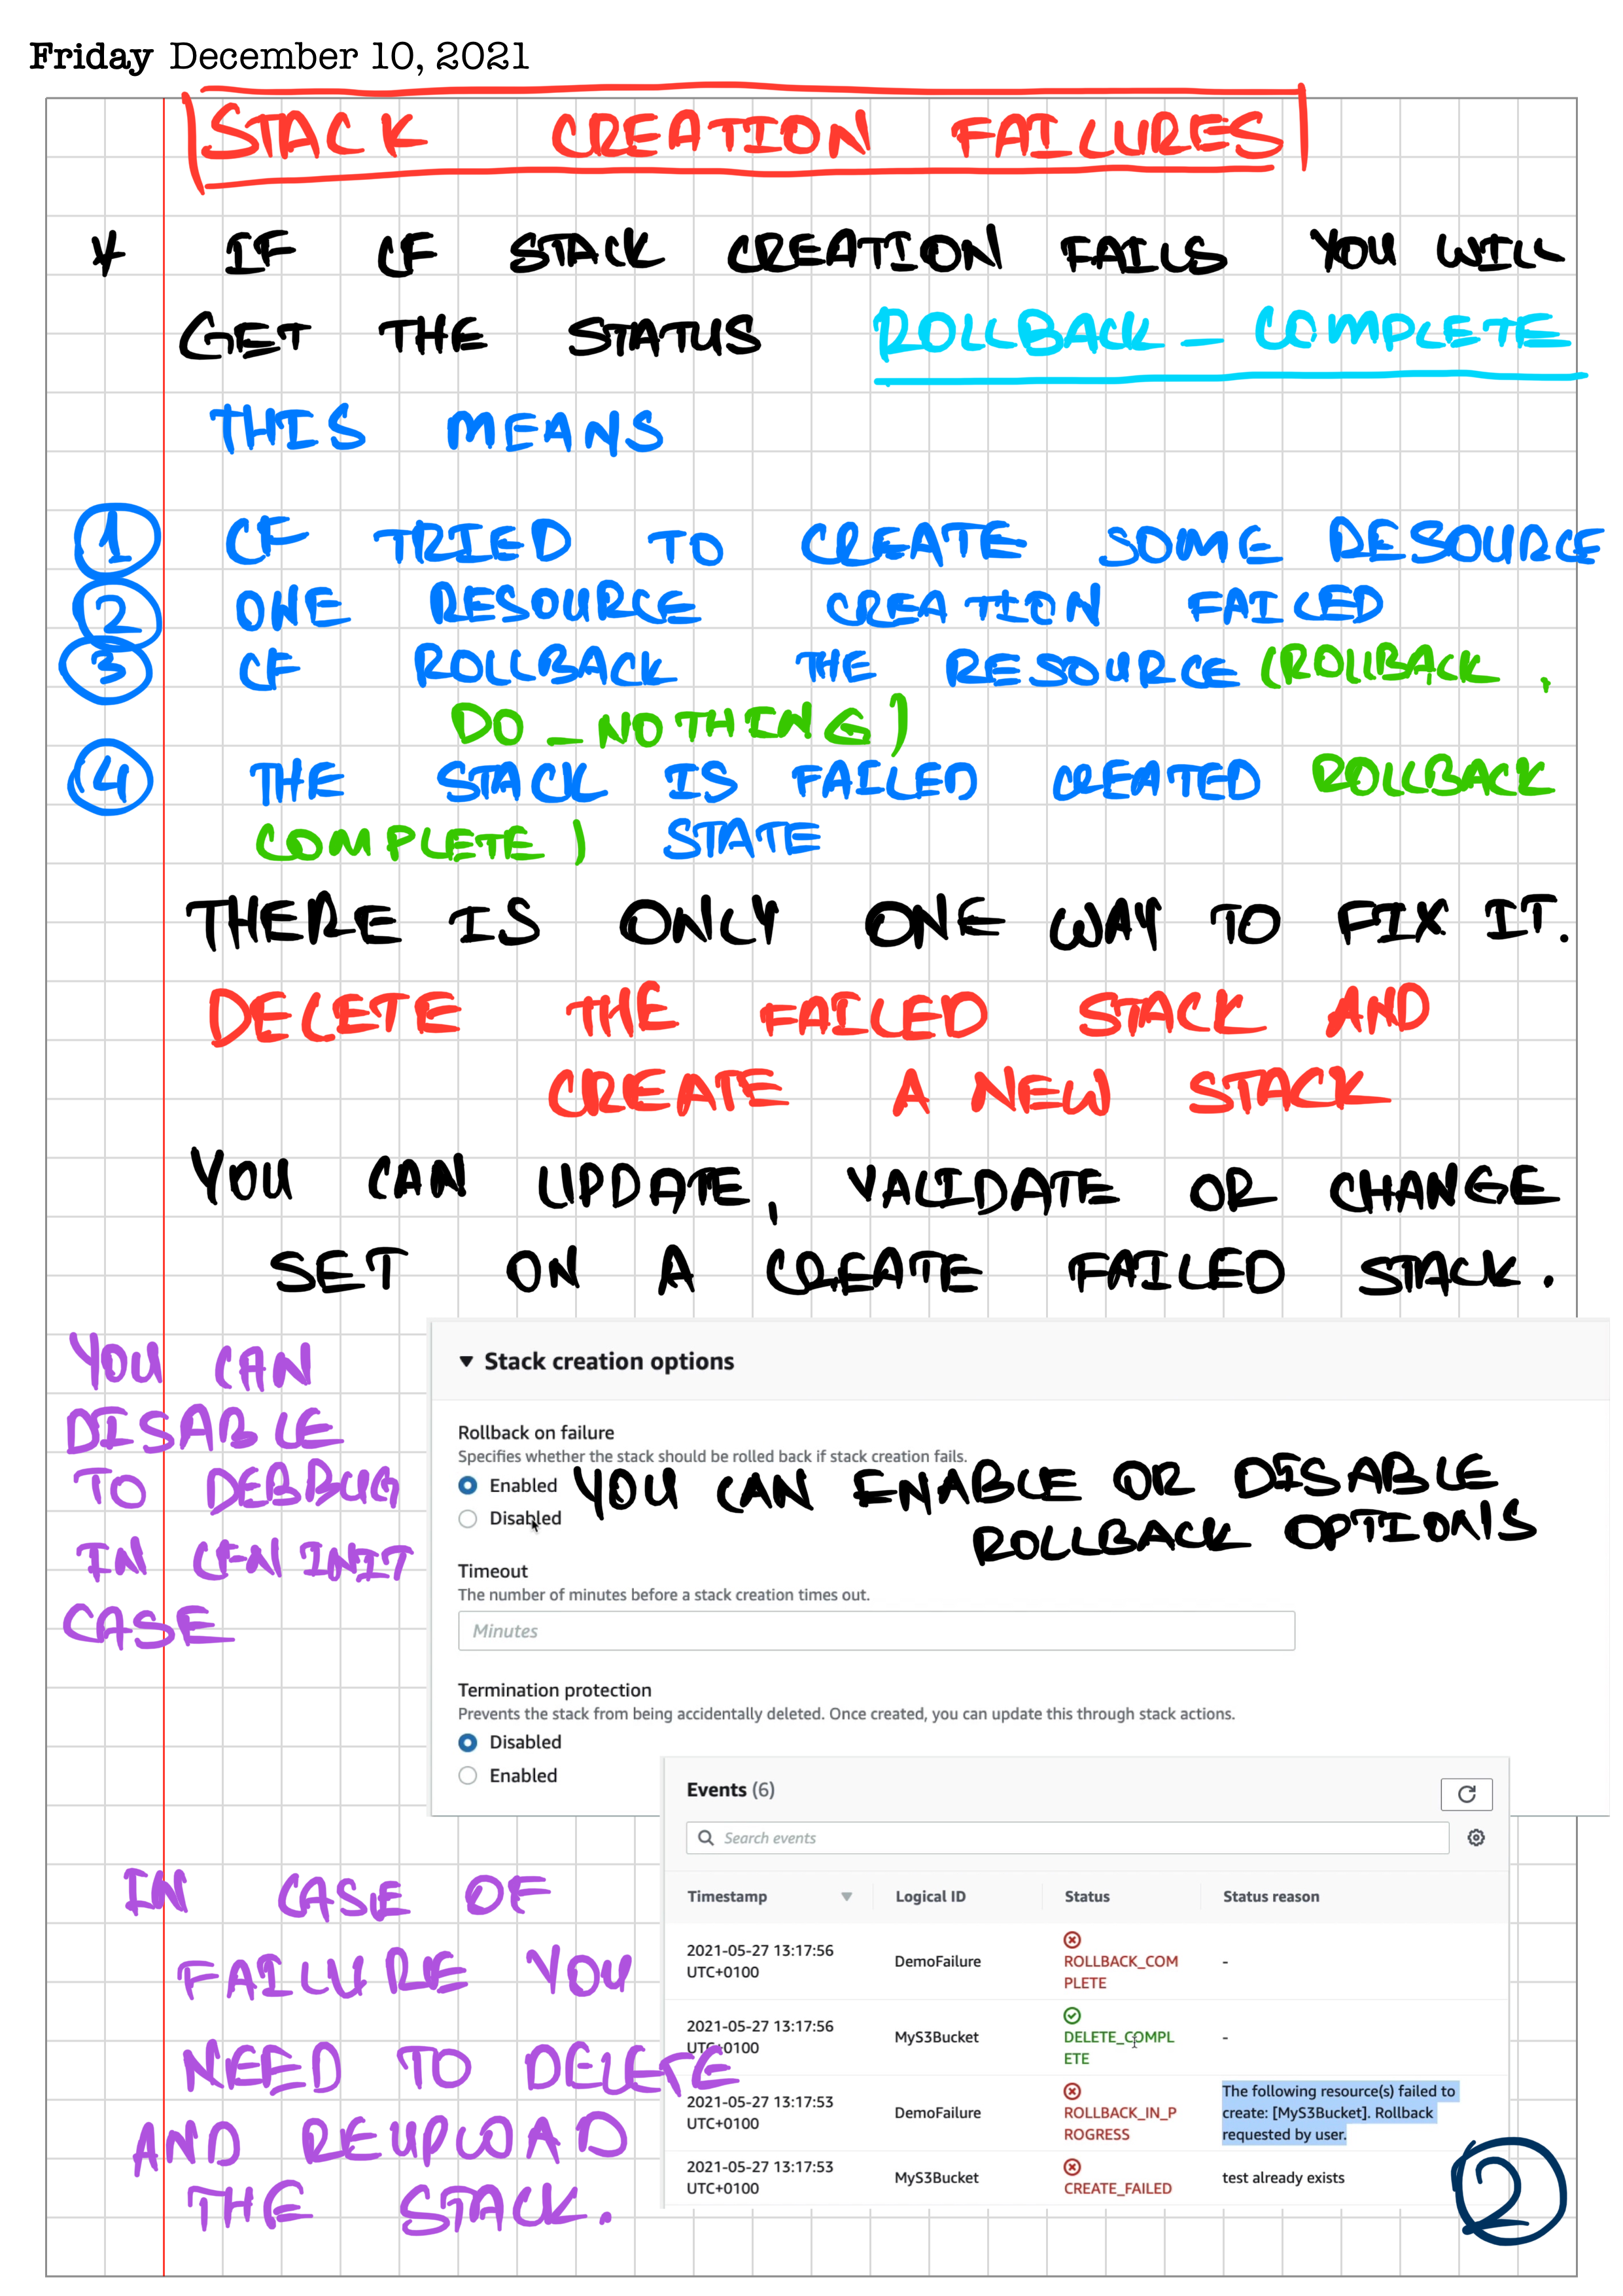 Friday December 10, 2021
STACK CREATION FAILURES
* IF CF STACK CREATION FAILS YOU WILL
GET THE STATUS ROLLBACK_COMPLETE
THIS MEANS
1 CF TRIED TO CREATE SOME RESOURCE
2 ONE RESOURCE CREATION FAILED
3 CF ROLLBACK THE RESOURCE (ROLLBACK,
DO_NOTHING)
4 THE STACK IS FAILED CREATED ROLLBACK
COMPLETE) STATE
THERE IS ONLY ONE WAY TO FIX IT.
DELETE THE FAILED STACK AND
CREATE A NEW STACK
YOU CAN UPDATE, VALIDATE OR CHANGE
SET ON A CREATE FAILED STACK.
YOU CAN
DISABLE
TO DEBBUG
IN CFN INIT
CASE
▼ Stack creation options
Rollback on failure
Specifies whether the stack should be rolled back if stack creation fails.
Enabled
Disabled
YOU CAN ENABLE OR DISABLE
ROLLBACK OPTIONS
Timeout
The number of minutes before a stack creation times out.
Minutes
Termination protection
Prevents the stack from being accidentally deleted. Once created, you can update this through stack actions.
Disabled
Enabled
IN CASE OF
FAILURE YOU
NEED TO DELETE
AND REUPLOAD
THE STACK.
Events (6)
Search events
Timestamp Logical ID Status Status reason
2021-05-27 13:17:56
UTC+0100
DemoFailure
ROLLBACK_COM
PLETE
-
2021-05-27 13:17:56
UTC+0100
MyS3Bucket
DELETE_COMPL
ETE
-
2021-05-27 13:17:53
UTC+0100
DemoFailure
ROLLBACK_IN_P
ROGRESS
The following resource(s) failed to
create: [MyS3Bucket]. Rollback
requested by user.
2021-05-27 13:17:53
UTC+0100
MyS3Bucket
CREATE_FAILED
test already exists
2